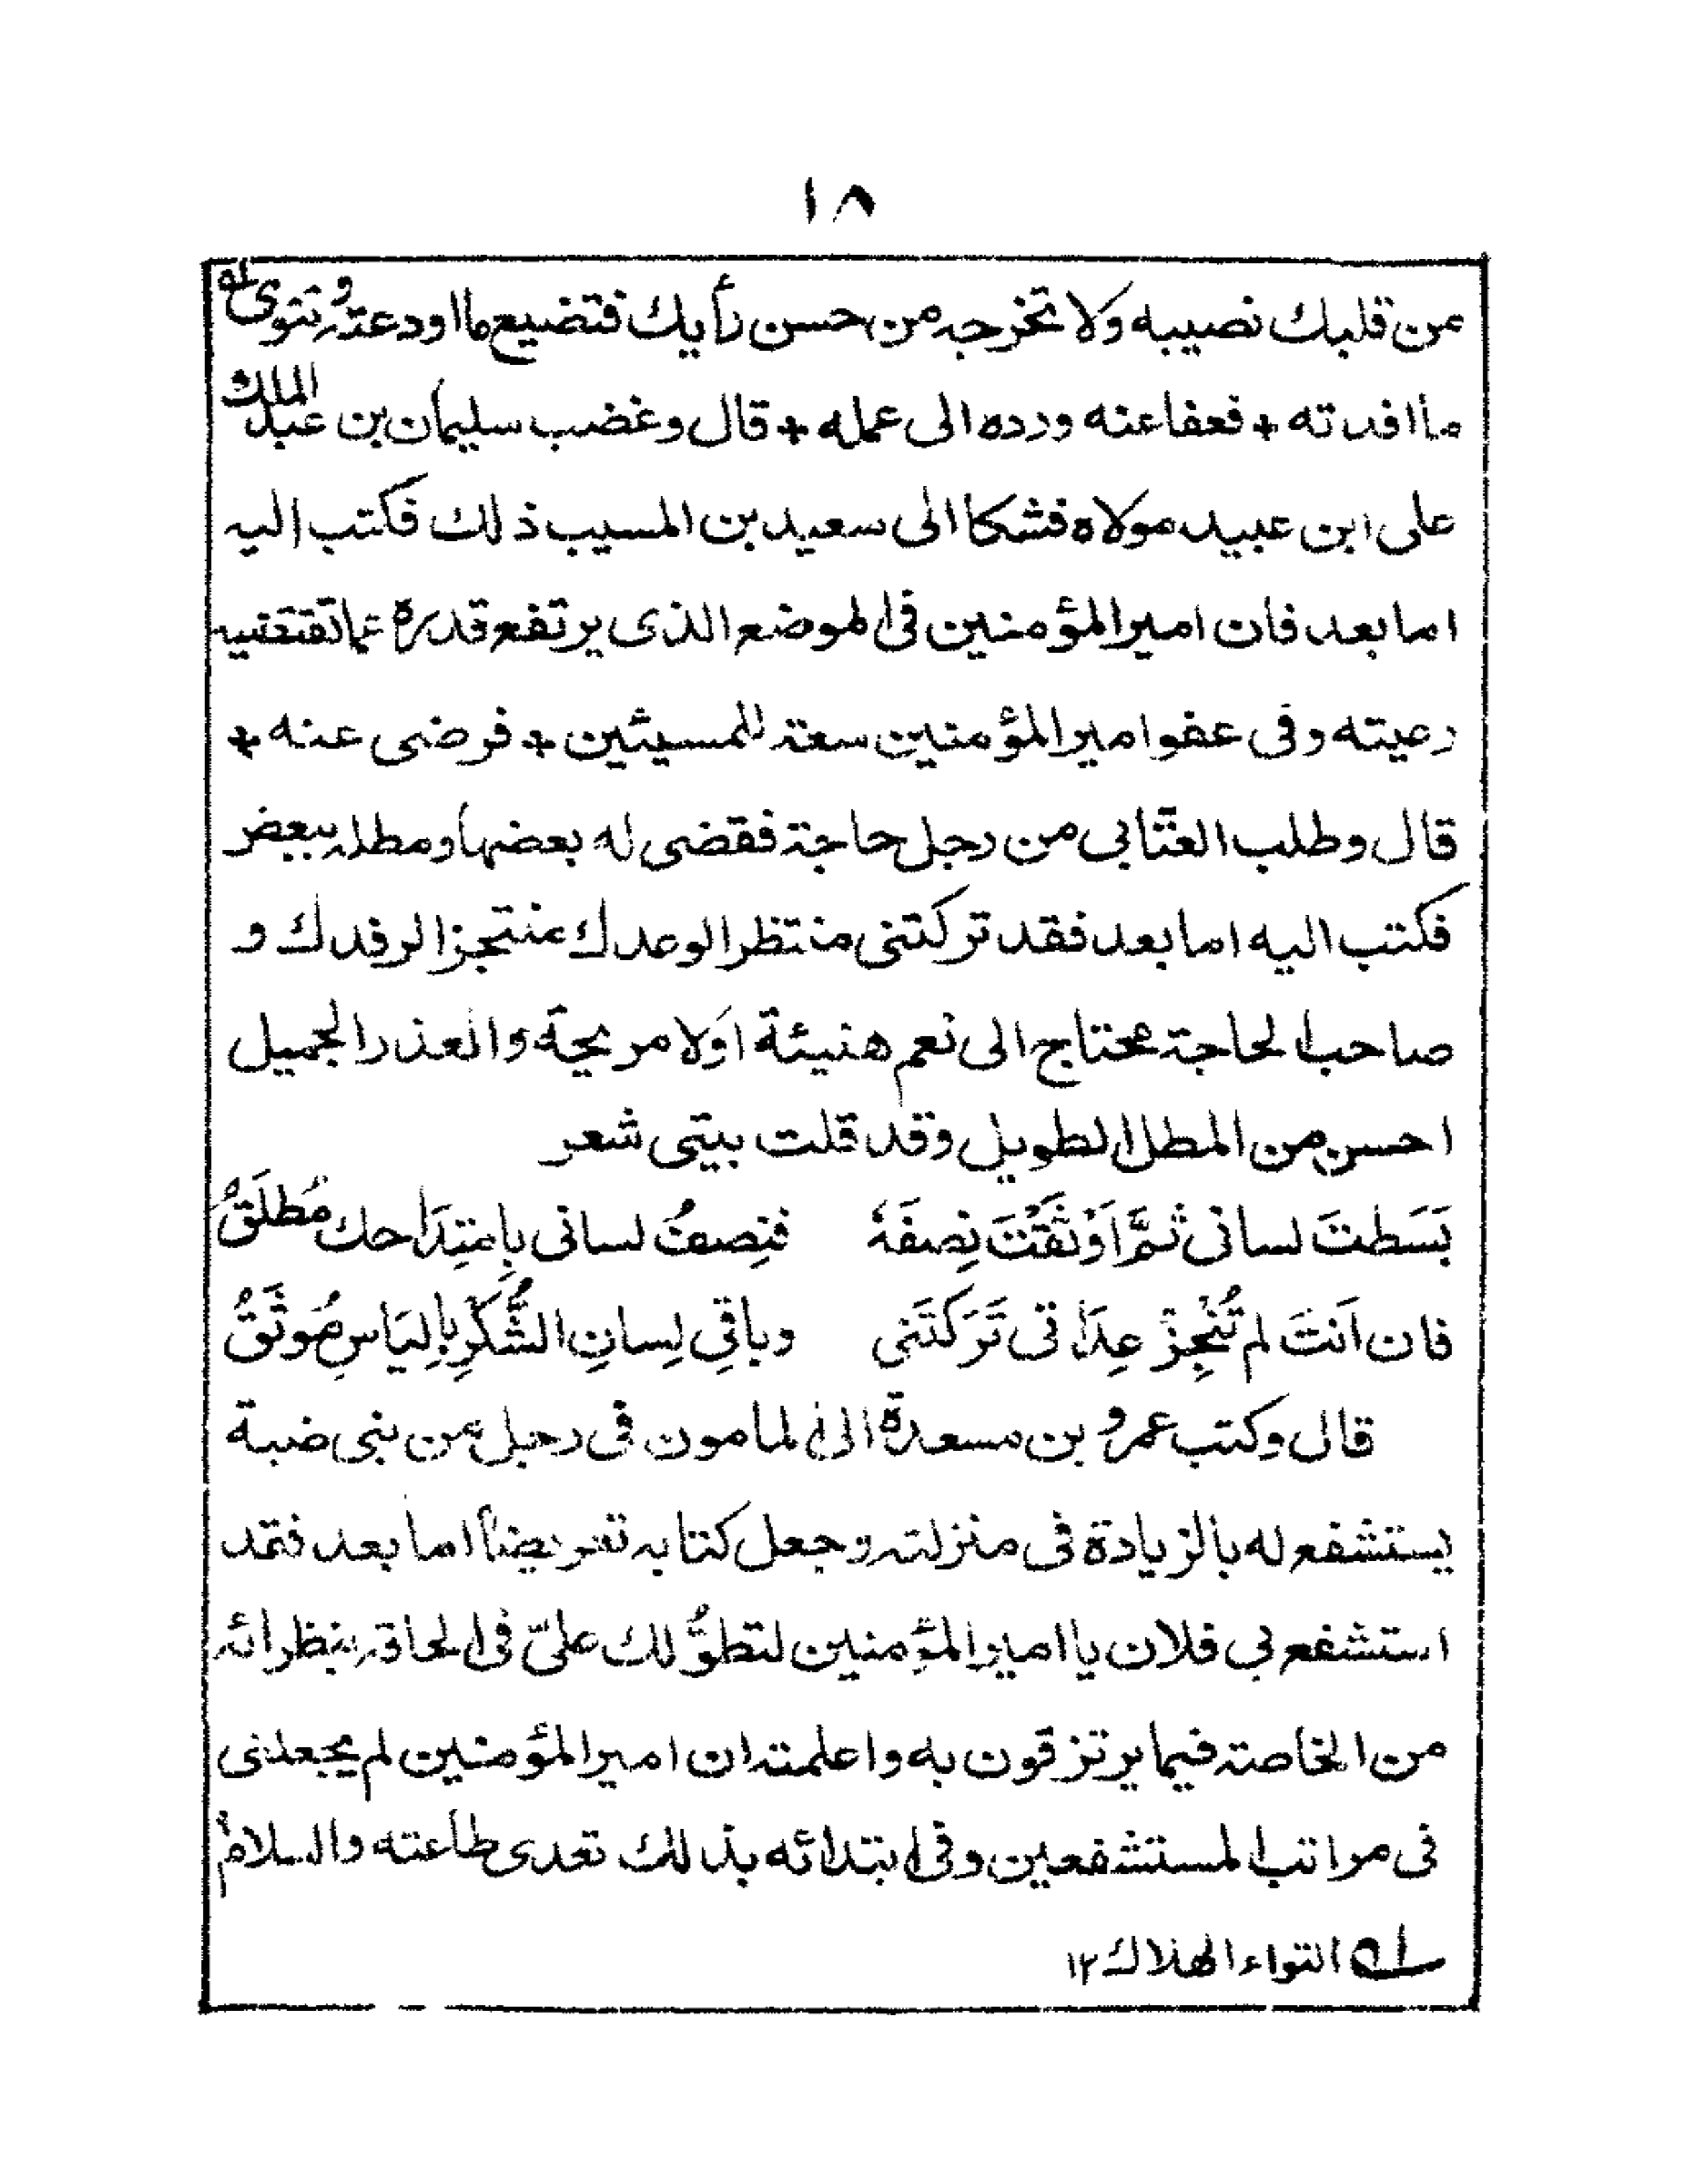 ١٨
من قلبك نصيبه ولا تخرجه من حسن رأيك فتضيع ما اودعته وتتوى له
ما افدته + فعفا عنه ورده الى عمله + قال وغضب سليمان بن عبد الملك
على ابن عبيد مولاه فشكا الى سعيد بن المسيب ذلك فكتب اليه
اما بعد فان امير المؤمنين فى الموضع الذى يرتفع قدره عما تقتضيه
رعيته وفى عفو امير المؤمنين سعة للمسيئين + فرضى عنه +
قال وطلب العتّابى من رجل حاجة فقضى له بعضها ومطله ببعض
فكتب اليه اما بعد فقد تركتنى منتظرا لوعدك منتجزا لرفدك و
صاحب الحاجة محتاج الى نعم هنيئة اَولا مريحة والعذر الجميل
احسن من المطل الطويل وقد قلت بيتى شعر
بَسَطتَ لسانى ثمَّ اَوْثَقْتَ نِصفَهٗ فنِصفُ لسانى بِامتِدَاحك مُطلَقُ
فان اَنتَ لم تُنْجِزْ عِدَاتى تَرَكتَنى وباقِى لِسانِ الشُّكْرِ بِاليَاسِ مُوثَقُ
قال وكتب عمرو بن مسعدة الى المامون فى رجل من بنى ضبة
يستشفع له بالزيادة فى منزلته وجعل كتابه تعريضاً اما بعد فقد
استشفع بى فلان يا امير المؤمنين لتطوُّلك علىّ فى الحاقه بنظرائه
من الخاصة فيما يرتزقون به واعلمته ان امير المؤمنين لم يجعلنى
فى مراتب المستشفعين وفى ابتدائه بذلك تعدى طاعته والسلام
له التواء الهلاك ١٢